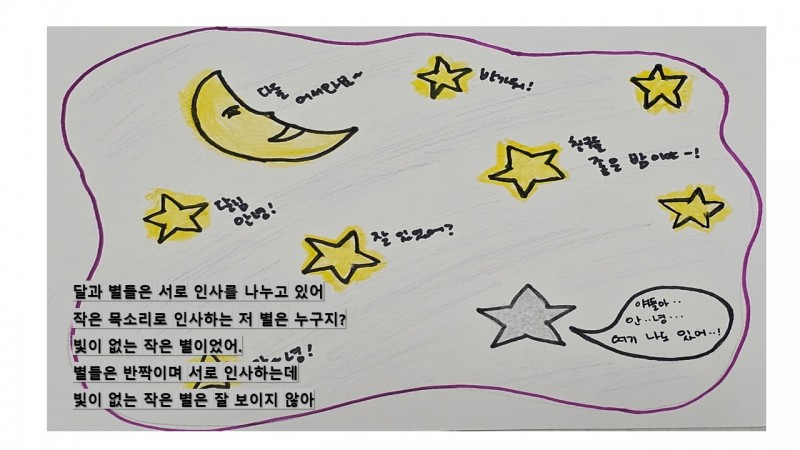 다들
어서와요~
반가워!
친구들
좋은 밤이야~!
달님
안녕!
잘 있었어?
얘들아..
안..녕...
여기 나도 있어..!
달과 별들은 서로 인사를 나누고 있어
작은 목소리로 인사하는 저 별은 누구지?
빛이 없는 작은 별이었어.
별들은 반짝이며 서로 인사하는데
빛이 없는 작은 별은 잘 보이지 않아